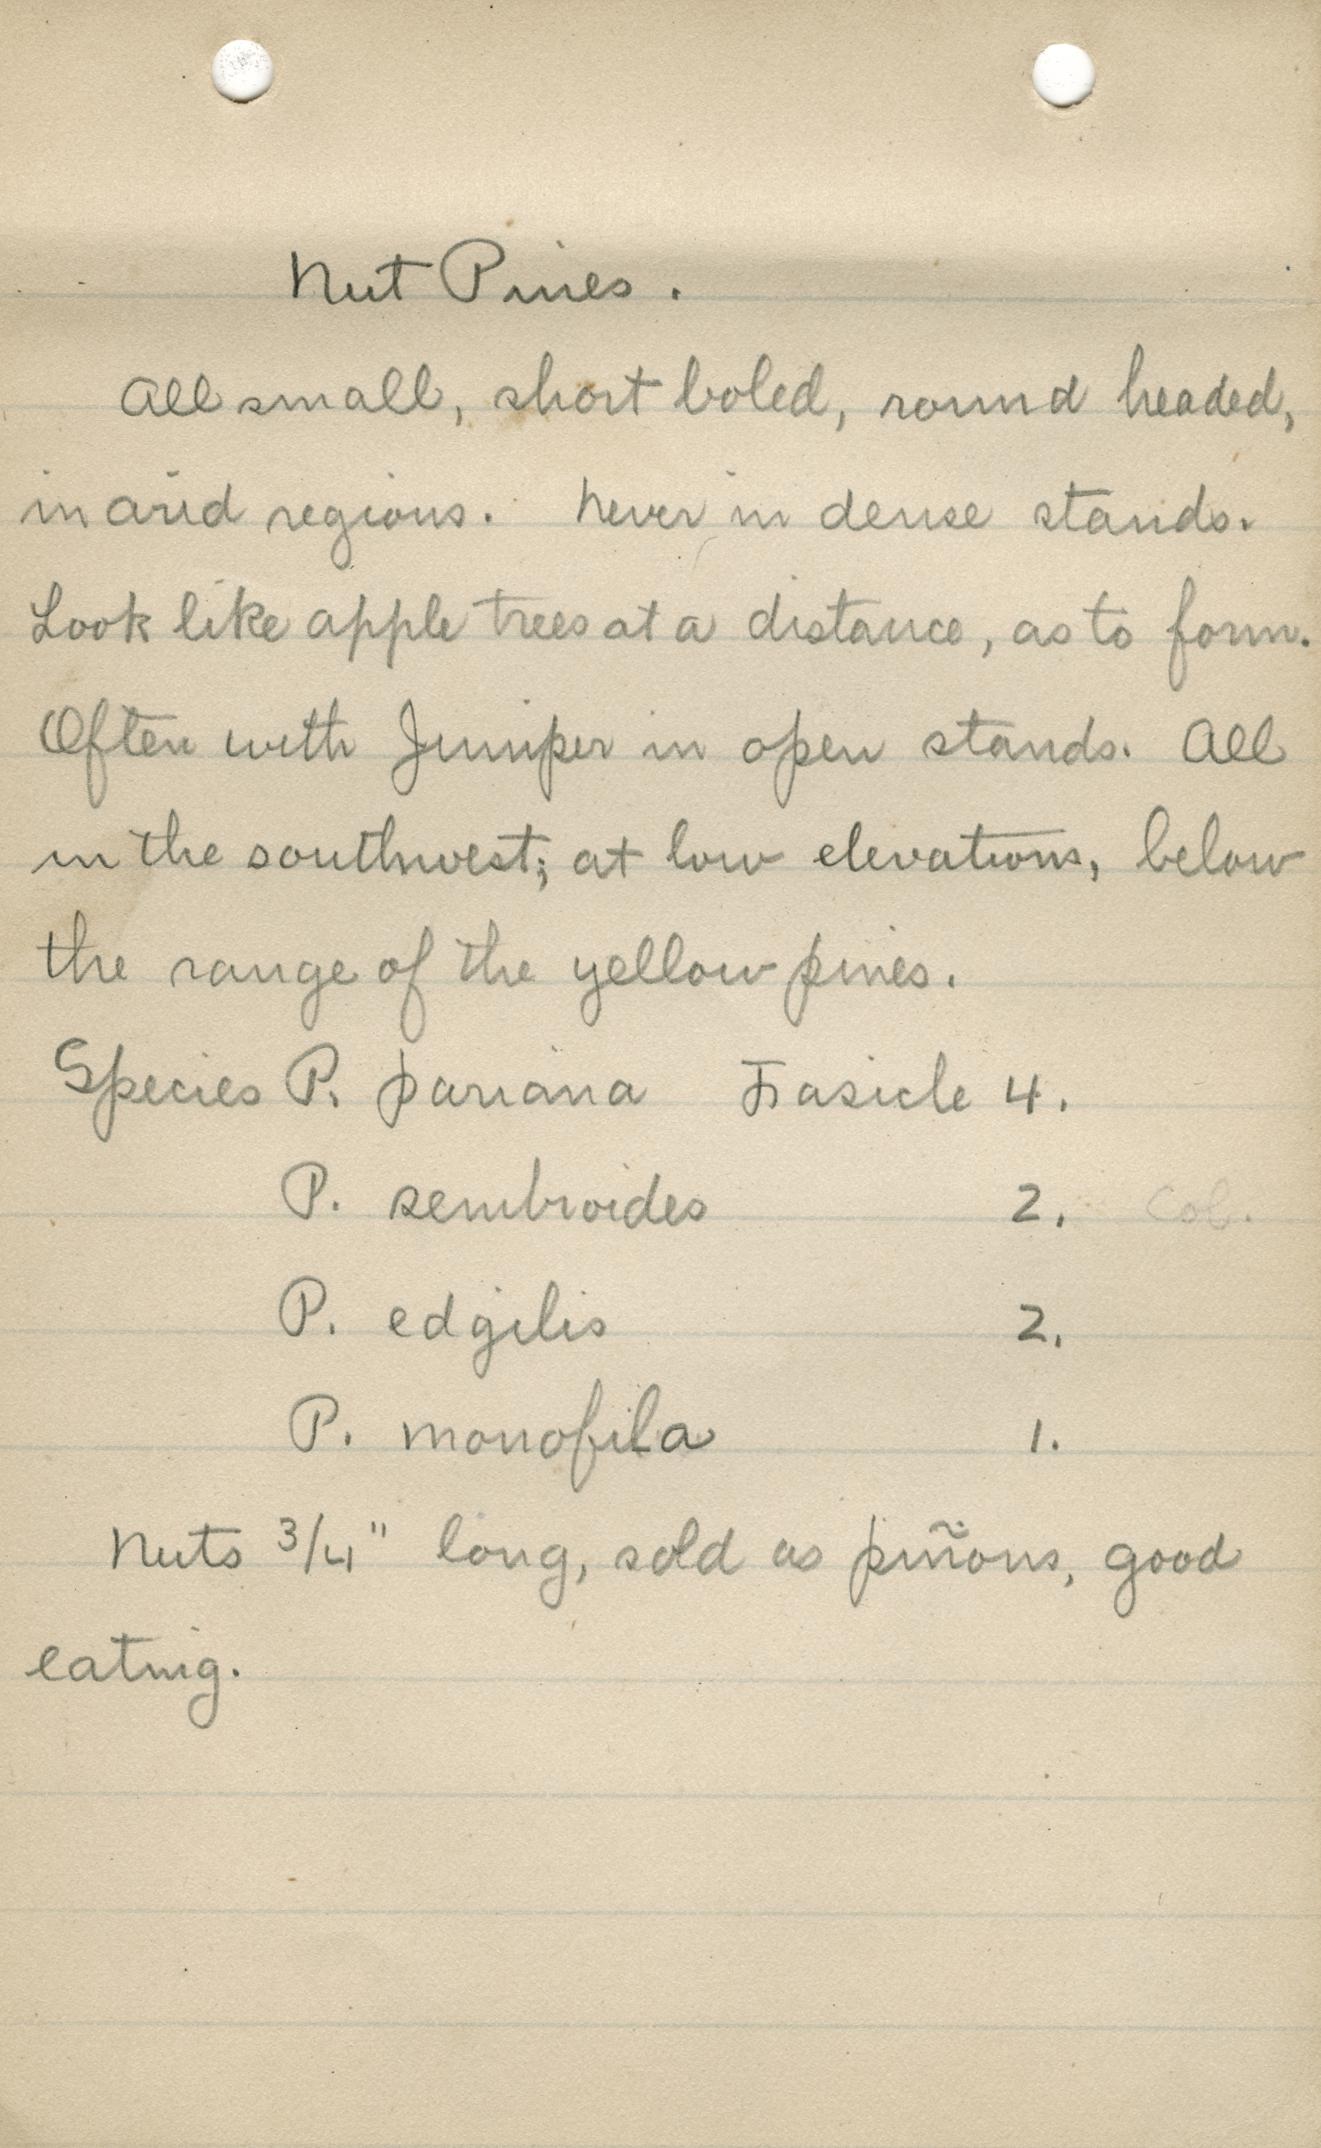 Nut Pines.
All small, short boled, round headed,
in arid regions. Never in dense stands.
Look like apple trees at a distance, as to form.
Often with Juniper in open stands. All
in the southwest; at low elevations, below
the range of the yellow pines.
Species P. parrana Fasicle 4.
P. sembroides 2. Col.
P. edgilis 2.
P. monofila 1.
Nuts 3/4" long, sold as piñons, good
eating.